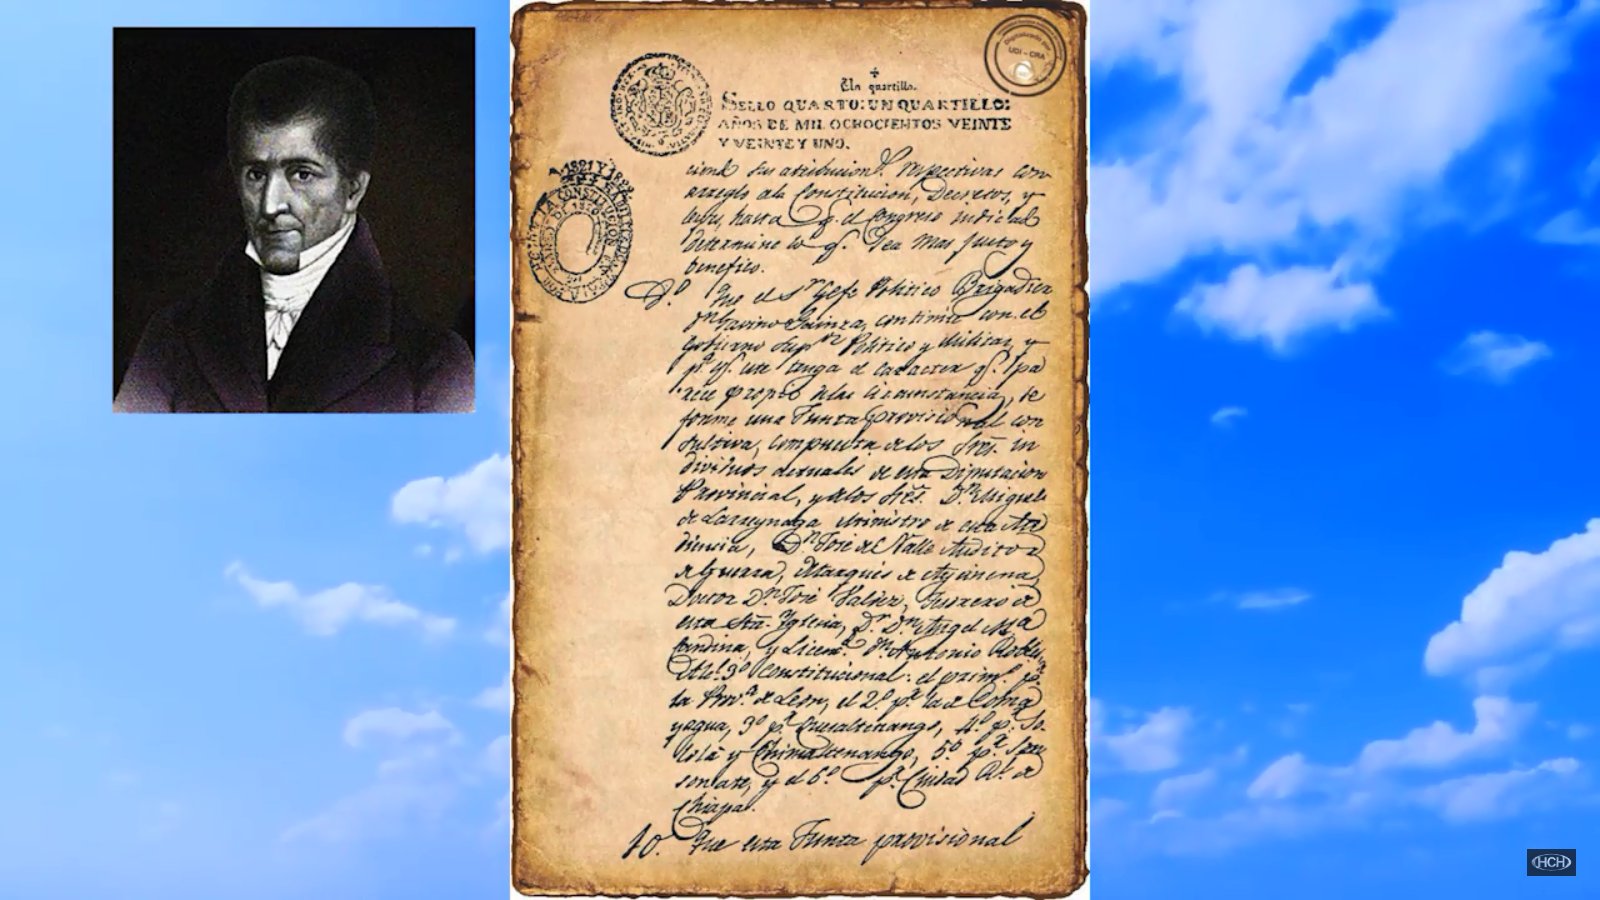 Digitalizado por
UDI - CRA
Un quartillo.
SELLO QUARTO: UN QUARTILLO:
AÑOS DE MIL OCHOCIENTOS VEINTE
Y VEINTE Y UNO.
ciend sus atribucion.s respectivas con
arreglo ala Constitucion, Decretos, y
leyes, hasta q. el Congreso indicado
determine lo q. sea mas justo y
benefico.
9.º Que el Sr Gefe Politico Brigadier
Dn Gavino Gainza, continue con el
Gobierno Supor Politico y Militar, y
pa q. este tenga el caracter q.
rece propio delas circunstancias, se
forme una Junta provisional con
sultiva, compuesta delos Sres. in
dividuos actuales de esta Diputacion
Provincial, y delos Sres. Dn Miguel
de Larreynaga Ministro de esta Au
diencia, Dn José del Valle Auditor
de Guerra, Marques de Aycinena,
Doctor Dn José Valdez, Tesorero de
esta Sta. Yglesia, Dr. Dn Angel Ma
Candina, y Licend. Dn Antonio Robles
Alc. 3º Constitucional: el prim.º pr.
la Prov.a de Leon, el 2.º pr. la de Coma
yagua, 3º pr Quesaltenango, 4.º pr. So
lolá y Chimaltenango, 5º pr. Son
sonate, y el 6.º pr. Ciudad Rl. de
Chiapa.
10. Que esta Junta provisional
HCH